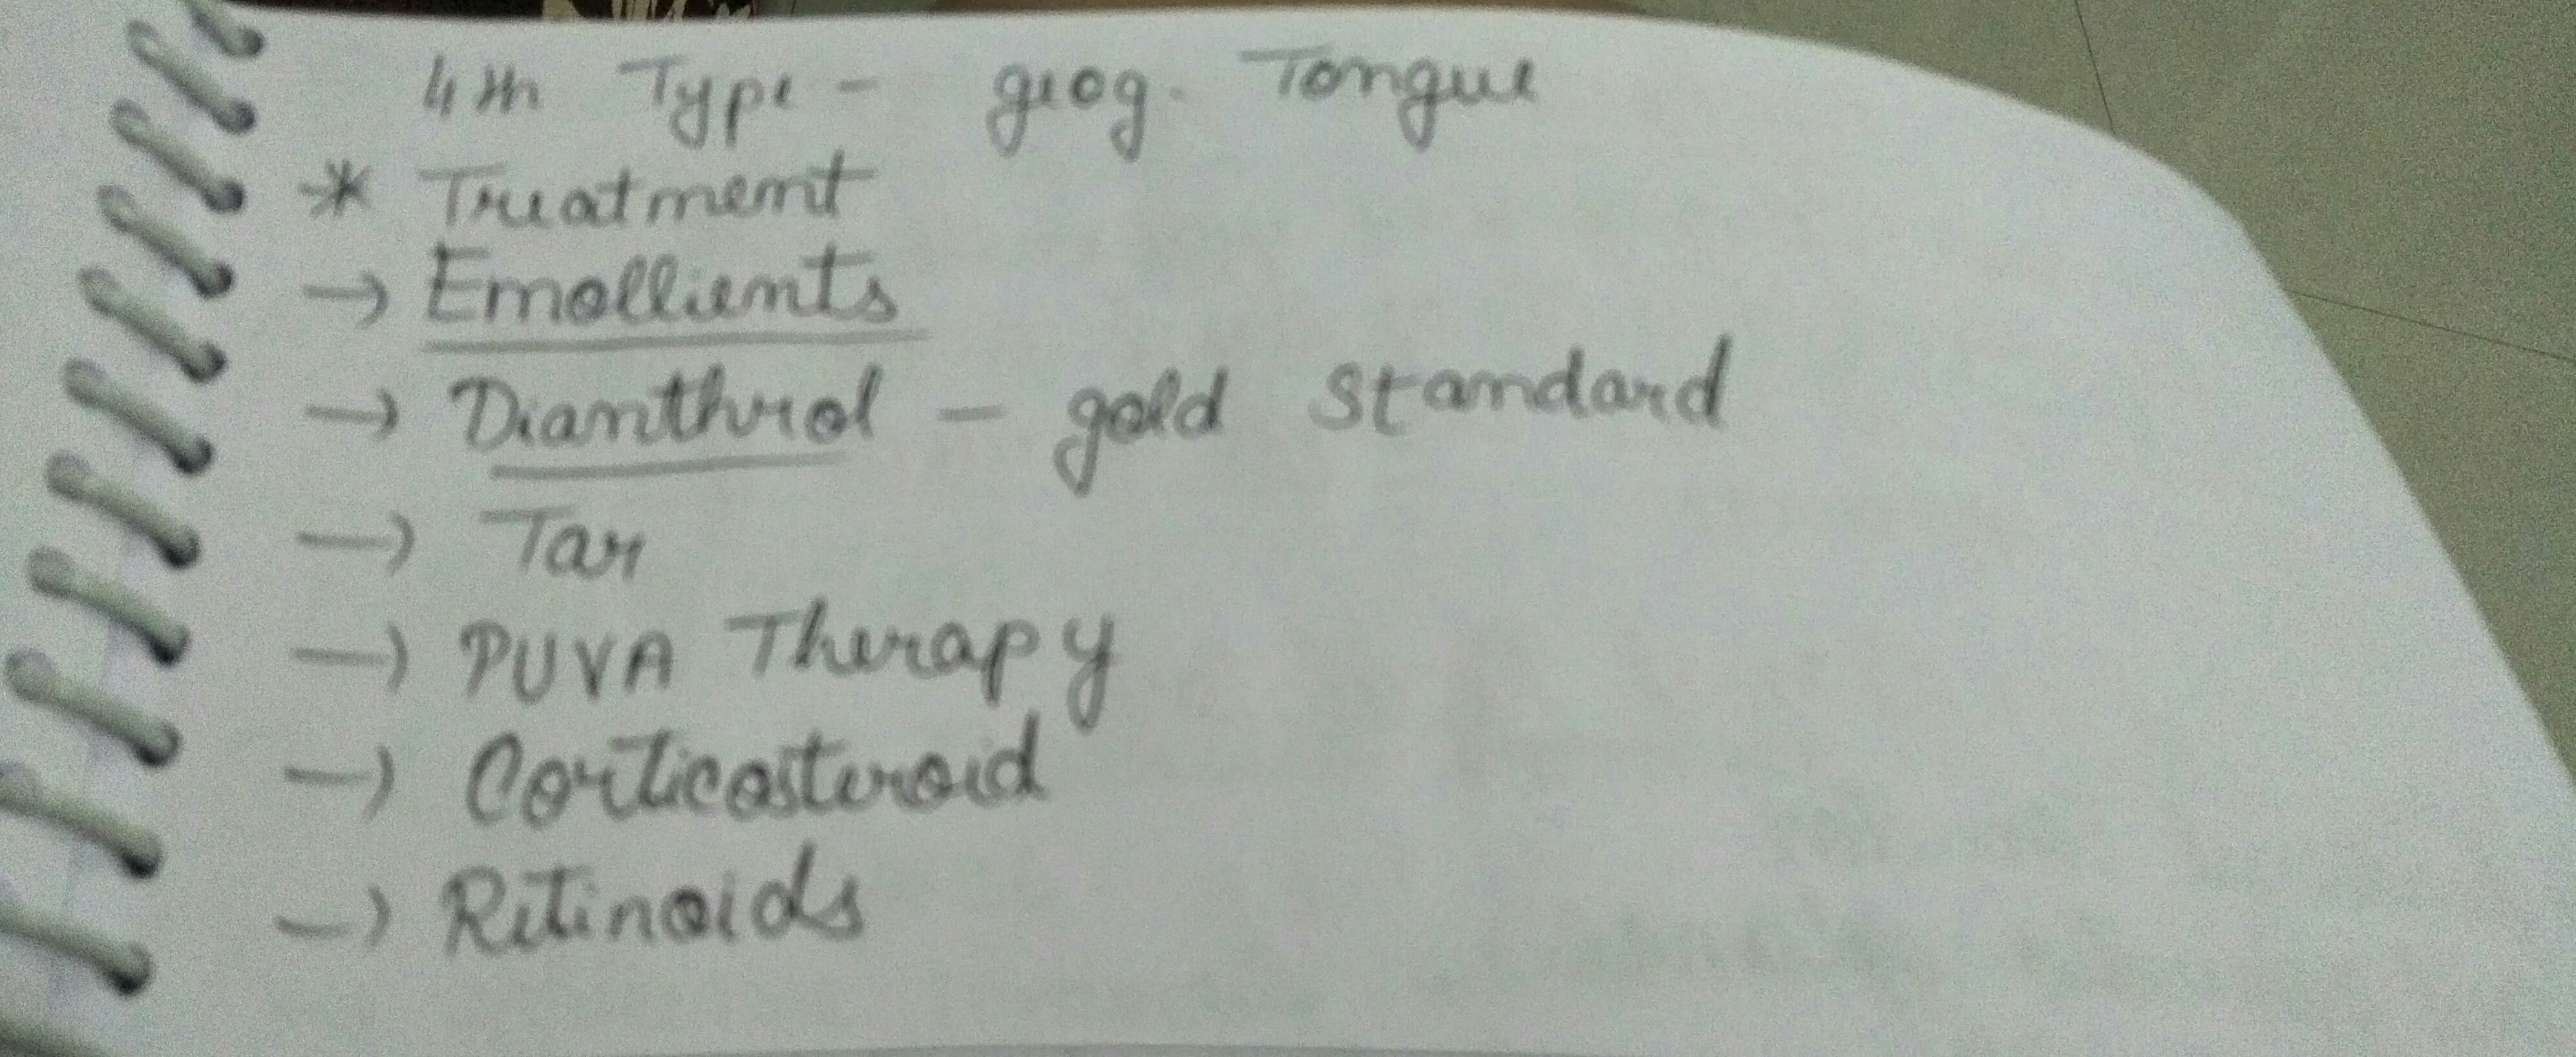 4th Type - geog. Tongue
* Treatment
→ Emollients
→ Dianthrol - gold standard
→ Tar
→ PUVA Therapy
→ Corticosteroid
→ Retinoids